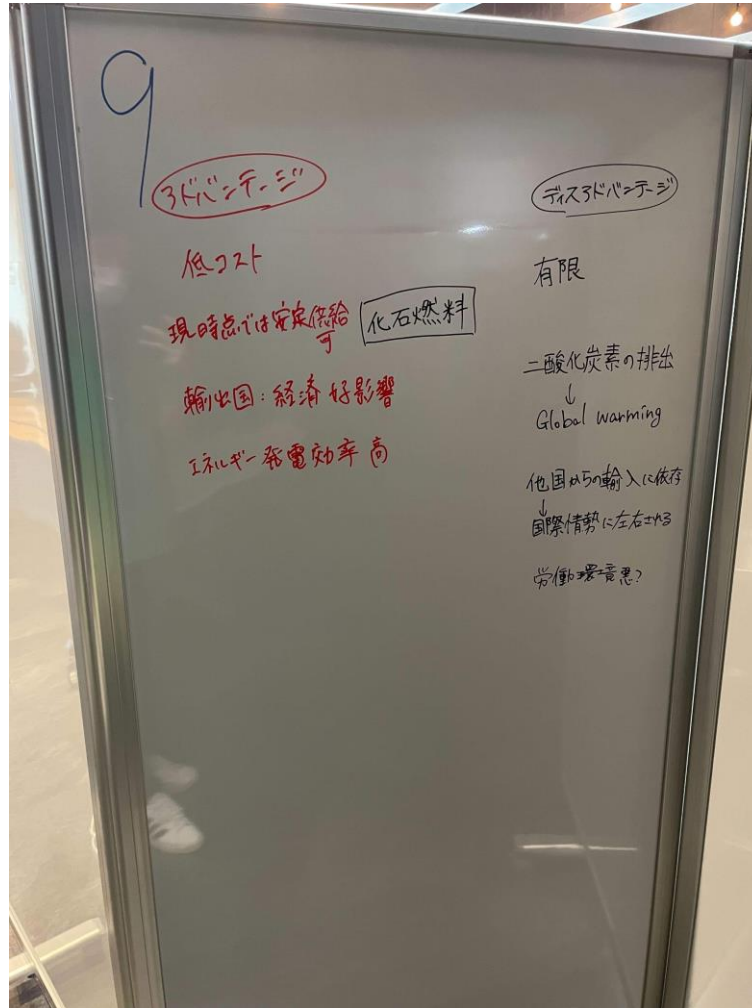 9
アドバンテージ
低コスト
現時点では安定供給可
輸出国:経済好影響
エネルギー発電効率高
化石燃料
ディスアドバンテージ
有限
二酸化炭素の排出
↓
Global warming
他国からの輸入に依存
↓
国際情勢に左右される
労働環境悪?